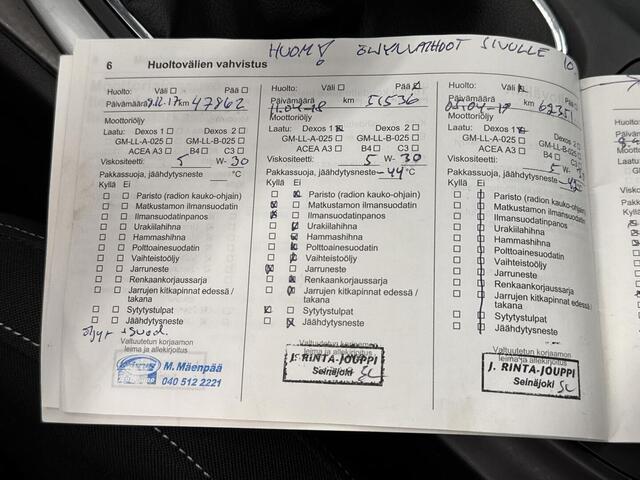 HUOM! ÖLJYNVAIHDOT SIVULLE 10
6 Huoltovälien vahvistus
Huolto: Väli Pää
Päivämäärä 9.12.17 km 47862
Moottoriöljy
Laatu: Dexos 1 Dexos 2
GM-LL-A-025 GM-LL-B-025
ACEA A3 B4 C3
Viskositeetti: 5 W- 30
Pakkassuoja, jäähdytysneste °C
Kyllä Ei
Paristo (radion kauko-ohjain)
Matkustamon ilmansuodatin
Ilmansuodatinpanos
Urakiilahihna
Hammashihna
Polttoainesuodatin
Vaihteistoöljy
Jarruneste
Renkaankorjaussarja
Jarrujen kitkapinnat edessä /
takana
Sytytystulpat
Jäähdytysneste
Valtuutetun korjaamon
leima ja allekirjoitus
M. Mäenpää
040 512 2221
Huolto: Väli Pää
Päivämäärä 11.04-18 km 51536
Moottoriöljy
Laatu: Dexos 1 Dexos 2
GM-LL-A-025 GM-LL-B-025
ACEA A3 B4 C3
Viskositeetti: 5 W- 30
Pakkassuoja, jäähdytysneste -44 °C
Kyllä Ei
Paristo (radion kauko-ohjain)
Matkustamon ilmansuodatin
Ilmansuodatinpanos
Urakiilahihna
Hammashihna
Polttoainesuodatin
Vaihteistoöljy
Jarruneste
Renkaankorjaussarja
Jarrujen kitkapinnat edessä /
takana
Sytytystulpat
Jäähdytysneste
Valtuutetun korjaamon
leima ja allekirjoitus
J. RINTA-JOUPPI
Seinäjoki
Huolto: Väli Pää
Päivämäärä km
Moottoriöljy
Laatu: Dexos 1 Dexos 2
GM-LL-A-025 GM-LL-B-025
ACEA A3 B4 C3
Viskositeetti: 5 W-
Pakkassuoja, jäähdytysneste
Kyllä Ei
Paristo (radion kauko-ohjain)
Matkustamon ilmansuodatin
Ilmansuodatinpanos
Urakiilahihna
Hammashihna
Polttoainesuodatin
Vaihteistoöljy
Jarruneste
Renkaankorjaussarja
Jarrujen kitkapinnat edessä /
takana
Sytytystulpat
Jäähdytysneste
Valtuutetun korjaamon
leima ja allekirjoitus
J. RINTA-JOUPPI
Seinäjoki